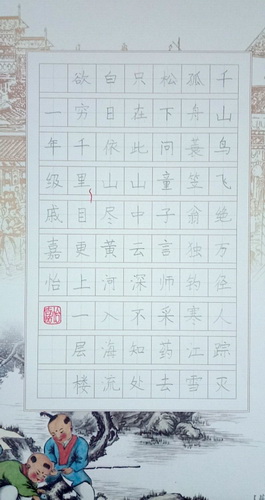 千山鸟飞绝万径人踪灭
孤舟蓑笠翁独钓寒江雪
松下问童子言师采药去
只在此山中云深不知处
白日依山尽黄河入海流
欲穷千里目更上一层楼
一年级戚嘉怡